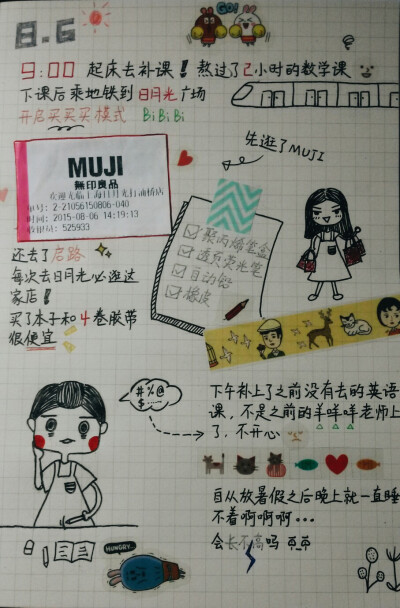 8.6
GO!
9:00 起床去补课！熬过了2小时的数学课
下课后乘地铁到日月光广场
开启买买买模式 BiBiBi
先逛了MUJI
MUJI
無印良品
欢迎光临上海日月光打浦桥店
单号: 2-21056150806-040
时间: 2015-08-06 14:19:13
收银员: 525933
聚丙烯笔盒
透页荧光笔
自动铅
橡皮
还去了启路
每次去日月光必逛这
家店！
买了本子和4卷胶带
很便宜
#%@
$
下午补上了之前没有去的英语
课，不是之前的羊咩咩老师上
了，不开心
自从放暑假之后晚上就一直睡
不着啊啊啊…
会长不高吗
HUNGRY...